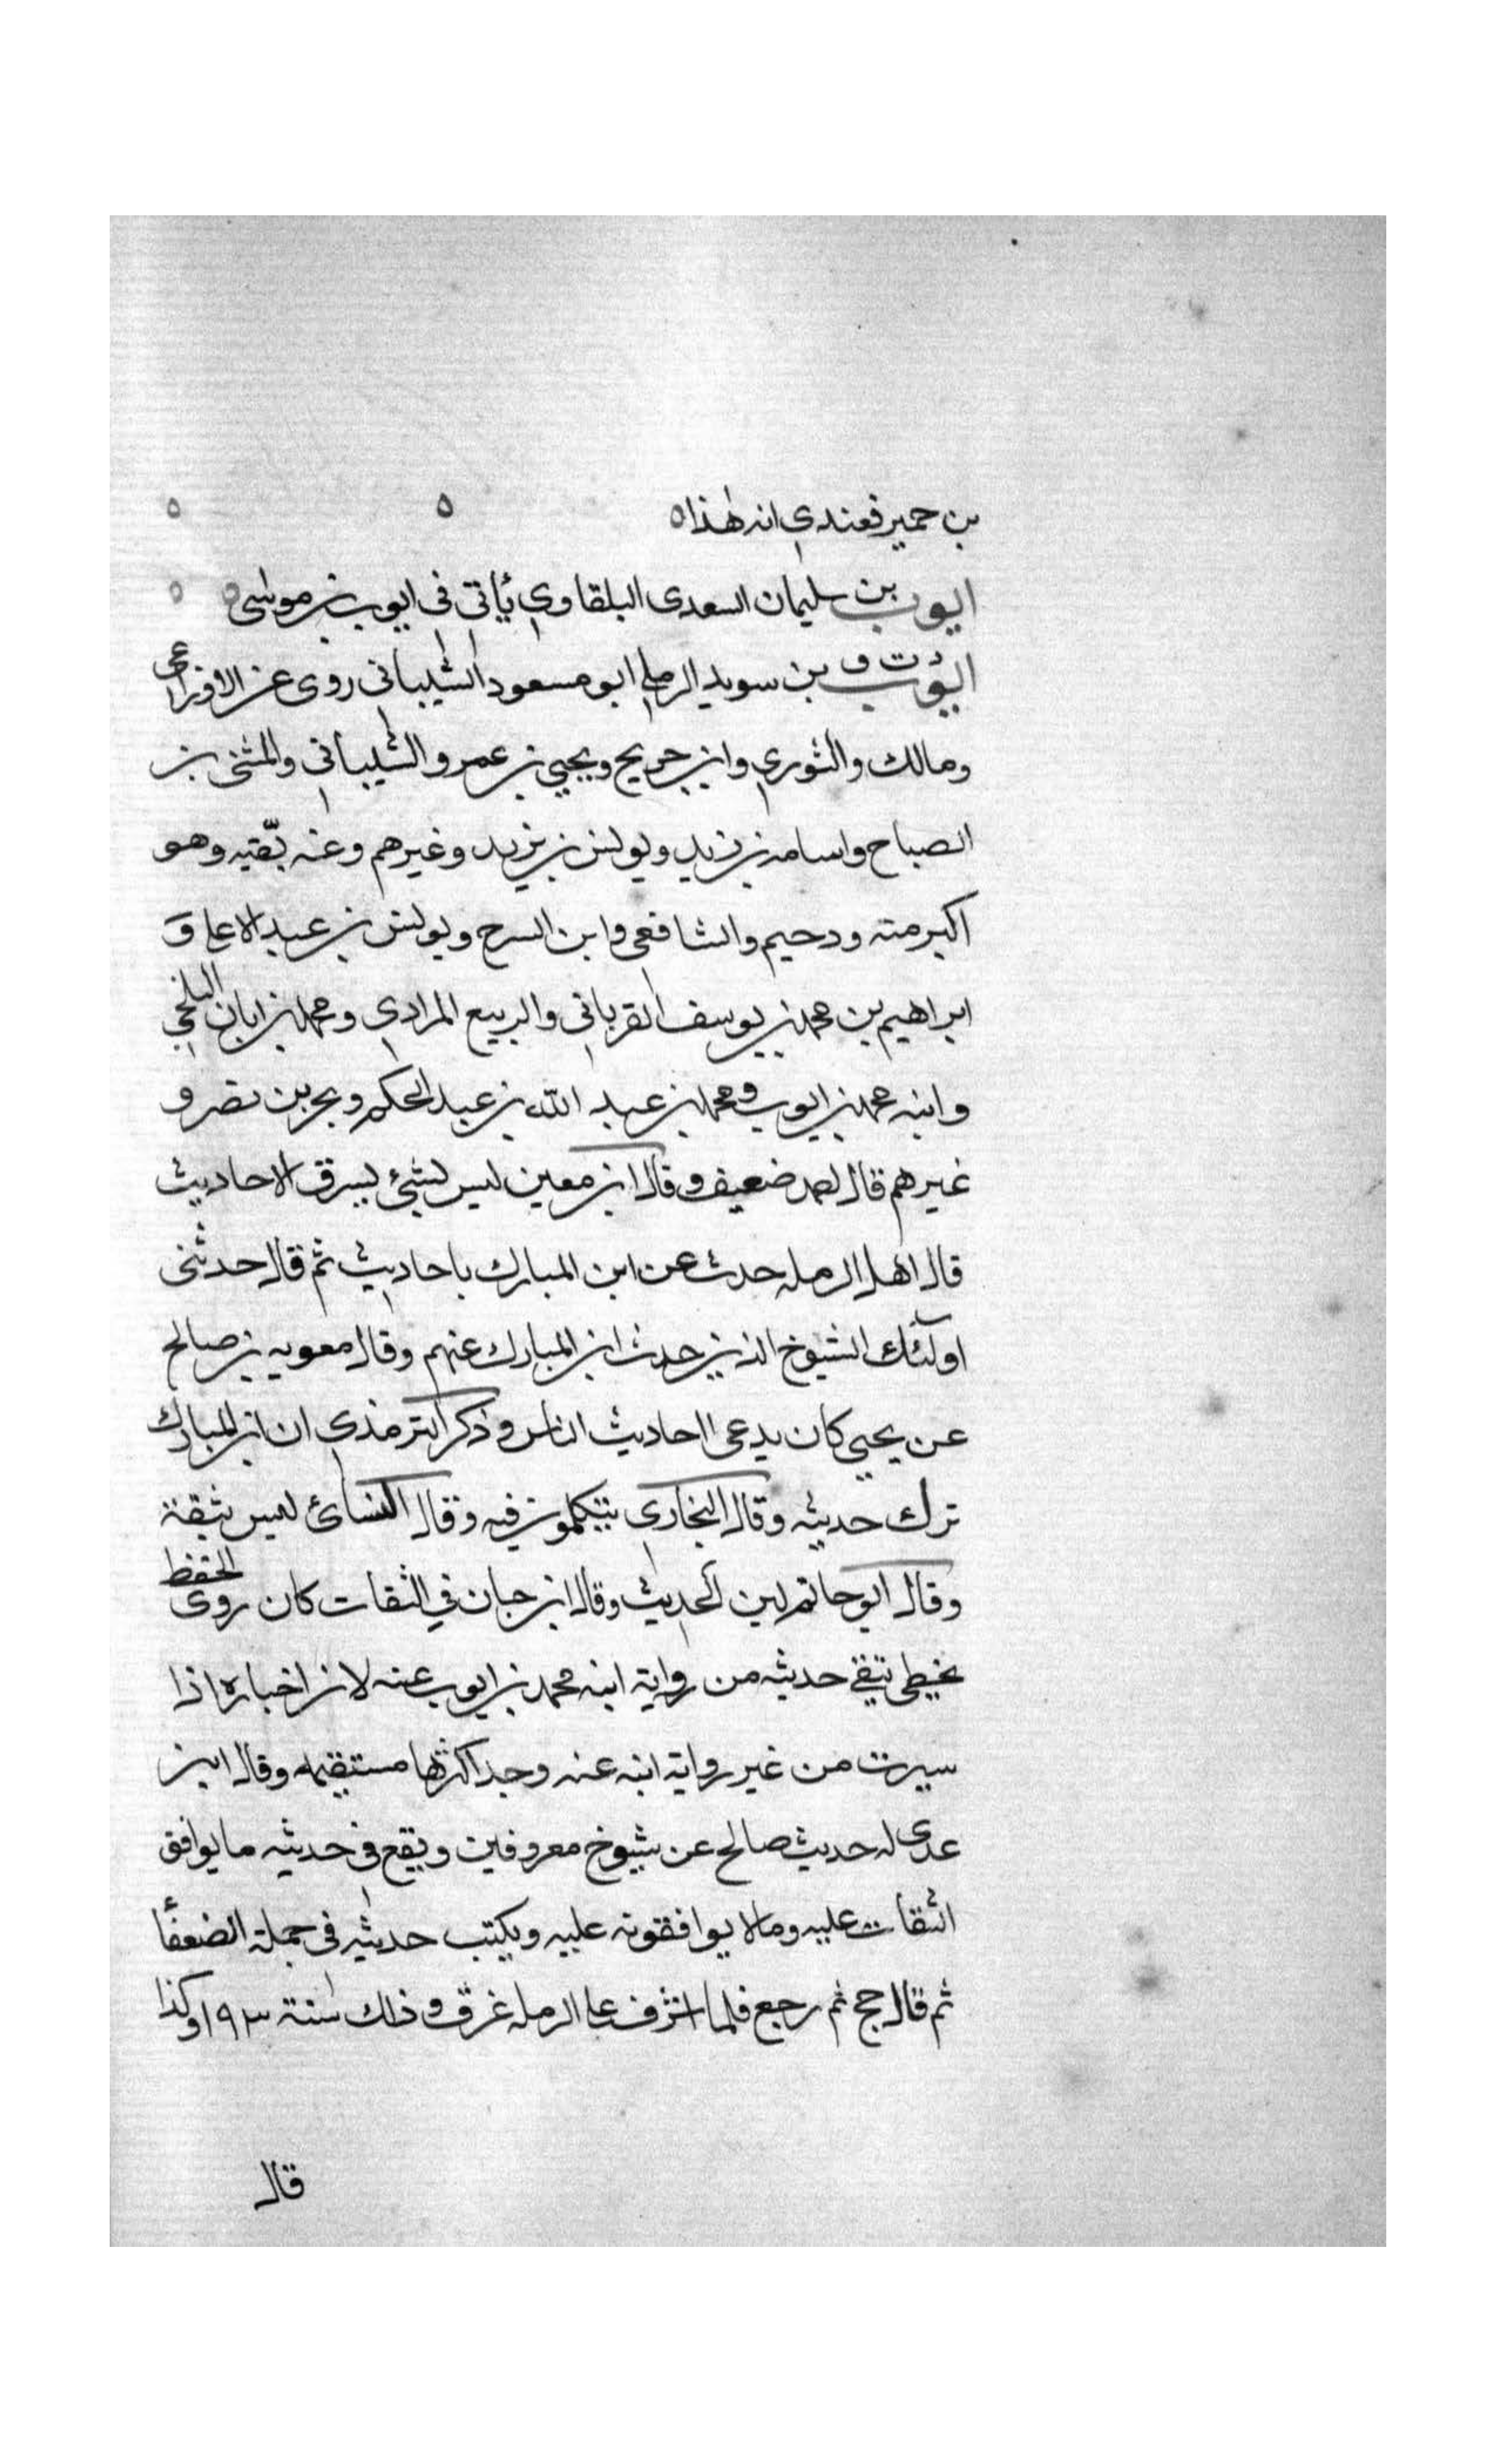 بن حمير فعندي انه هذا ه ه ه
ايوب بن سليمان السعدى البلقاوي يأتى فى ايوب بن موسى ه ه
ايوب د ت ق بن سويد الرملي ابو مسعود الشيبانى روى عن الاوزاعى
ومالك والثوري وابن جريج ويحيى بن عمرو الشيبانى والمثنى بن
الصباح واسامه بن زيد ويونس بن يزيد وغيرهم وعنه بقيه وهو
اكبر منه ودحيم والشافعى وابن السرح ويونس بن عبد الاعلى و
ابراهيم بن محمد بن يوسف الفريانى والربيع المرادي ومحمد بن ابان البلخي
وابنه محمد بن ايوب ومحمد بن عبد الله بن عبد الحكم وبحر بن نصر و
غيرهم قال احمد ضعيف وقال ابن معين ليس بشئ يسرق الاحاديث
قال اهل الرمله حدث عن ابن المبارك باحاديث ثم قال حدثنى
اولئك الشيوخ الذين حدث ابن المبارك عنهم وقال معويه بن صالح
عن يحيى كان يدعى احاديث الناس وذكر الترمذي ان ابن المبارك
ترك حديثه وقال البخارى يتكلمون فيه وقال النسائ ليس بثقة
وقال ابو حاتم لين الحديث وقال ابن حبان في الثقات كان روى الحفظ
يخطى يتقي حديثه من رواية ابنه محمد بن ايوب عنه لان اخباره اذا
سيرت من غير رواية ابنه عنه وجد اكثرها مستقيمه وقال ابن
عدى له حديث صالح عن شيوخ معروفين ويقع فى حديثه ما يوافق
الثقات عليه وما لا يوافقونه عليه ويكتب حديثه فى جملة الضعفأ
ثم قال حج ثم رجع فلما اشرف على الرمله غرق وذلك سنة ١٩٣ وكذا
قال